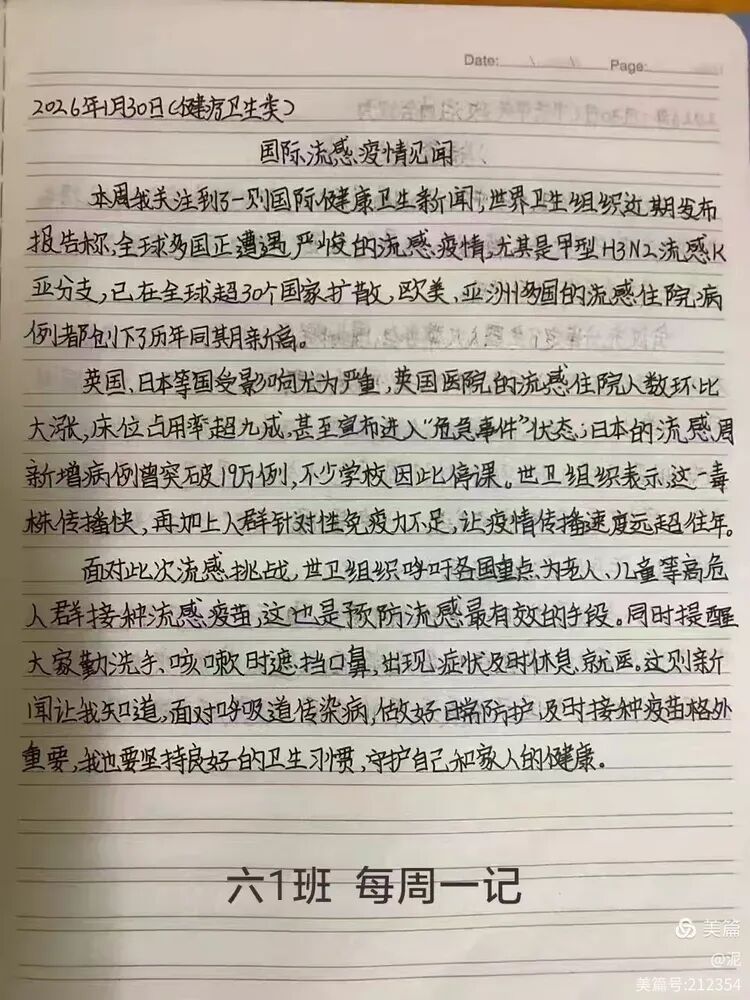 Date: / /
Page:
2026年1月30日(健康卫生类)
国际流感疫情见闻
本周我关注到了一则国际健康卫生新闻,世界卫生组织近期发布
报告称,全球多国正遭遇严峻的流感疫情,尤其是甲型H3N2流感K
亚分支,已在全球超30个国家扩散,欧美、亚洲多国的流感住院病
例都创下了历年同期新高。
英国、日本等国受影响尤为严重,英国医院的流感住院人数环比
大涨,床位占用率超九成,甚至宣布进入“危急事件”状态;日本的流感周
新增病例曾突破19万例,不少学校因此停课。世卫组织表示,这一毒
株传播快,再加上人群针对性免疫力不足,让疫情传播速度远超往年。
面对此次流感挑战,世卫组织呼吁各国重点为老人、儿童等高危
人群接种流感疫苗,这也是预防流感最有效的手段。同时提醒
大家勤洗手、咳嗽时遮挡口鼻,出现症状及时休息就医。这则新
闻让我知道,面对呼吸道传染病,做好日常防护、及时接种疫苗格外
重要,我也要坚持良好的卫生习惯,守护自己和家人的健康。
六1班 每周一记
美篇
@泥
美篇号:212354